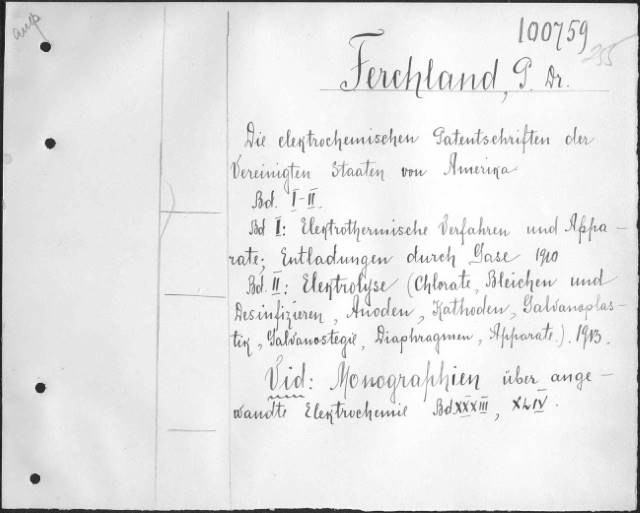 100759
255
Ferchland, P. Dr.
Die elektrochemischen Patentschriften der
Vereinigten Staaten von Amerika
Bd. I-II.
Bd I: Elektrothermische Verfahren und Appa-
rate; Entladungen durch Gase 1910
Bd. II: Elektrolyse (Chlorate, Bleichen und
Desinfizieren, Anoden, Kathoden, Galvanoplas-
tik, Galvanostegie, Diaphragmen, Apparate.). 1913.
Vid: Monographien über ange-
wandte Elektrochemie Bd XXXIII, XLIV.